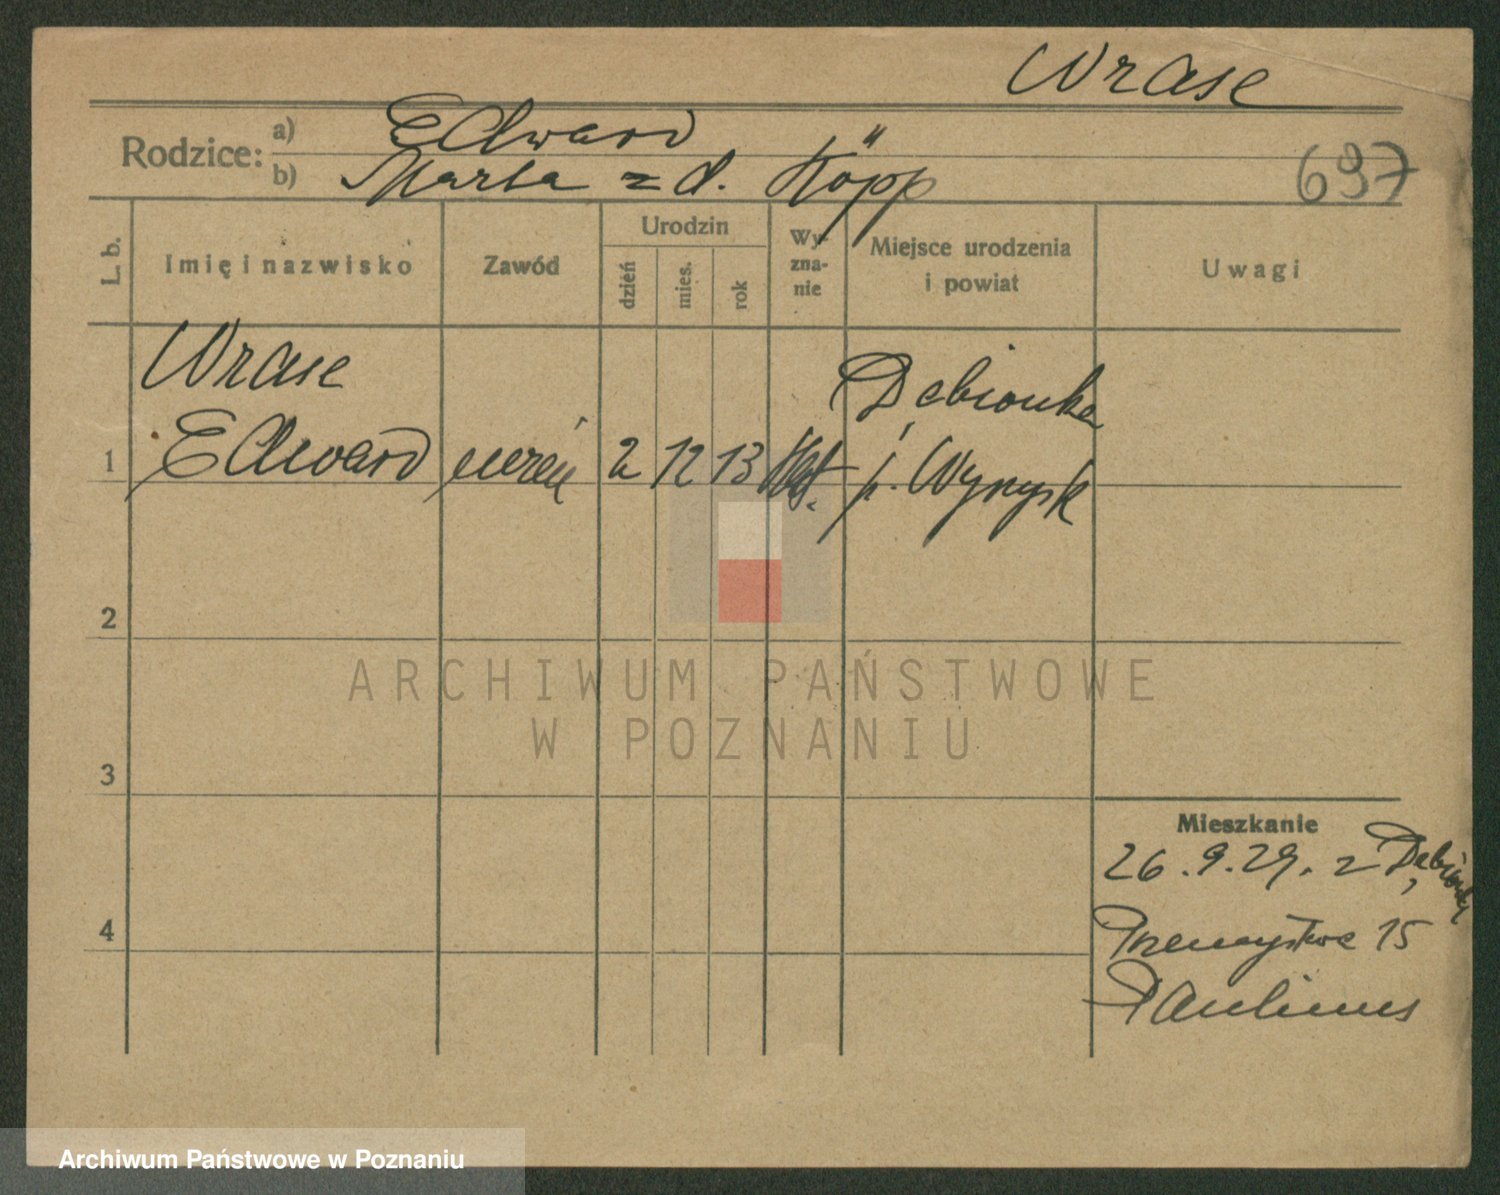 Wrase
Rodzice:
a) Edward
b) Marta z d. Köpp
697
L. b.
Imię i nazwisko
Zawód
Urodzin
dzień
mies.
rok
Wy-
zna-
nie
Miejsce urodzenia
i powiat
Uwagi
Wrase
Edward
1
uczeń
2 12 13
Dębionka
p. Wyrzysk
2
3
4
Mieszkanie
26.9.29. z Dębionka
Przemysłowa 15
Paulinus
ARCHIWUM PAŃSTWOWE
W POZNANIU
Archiwum Państwowe w Poznaniu